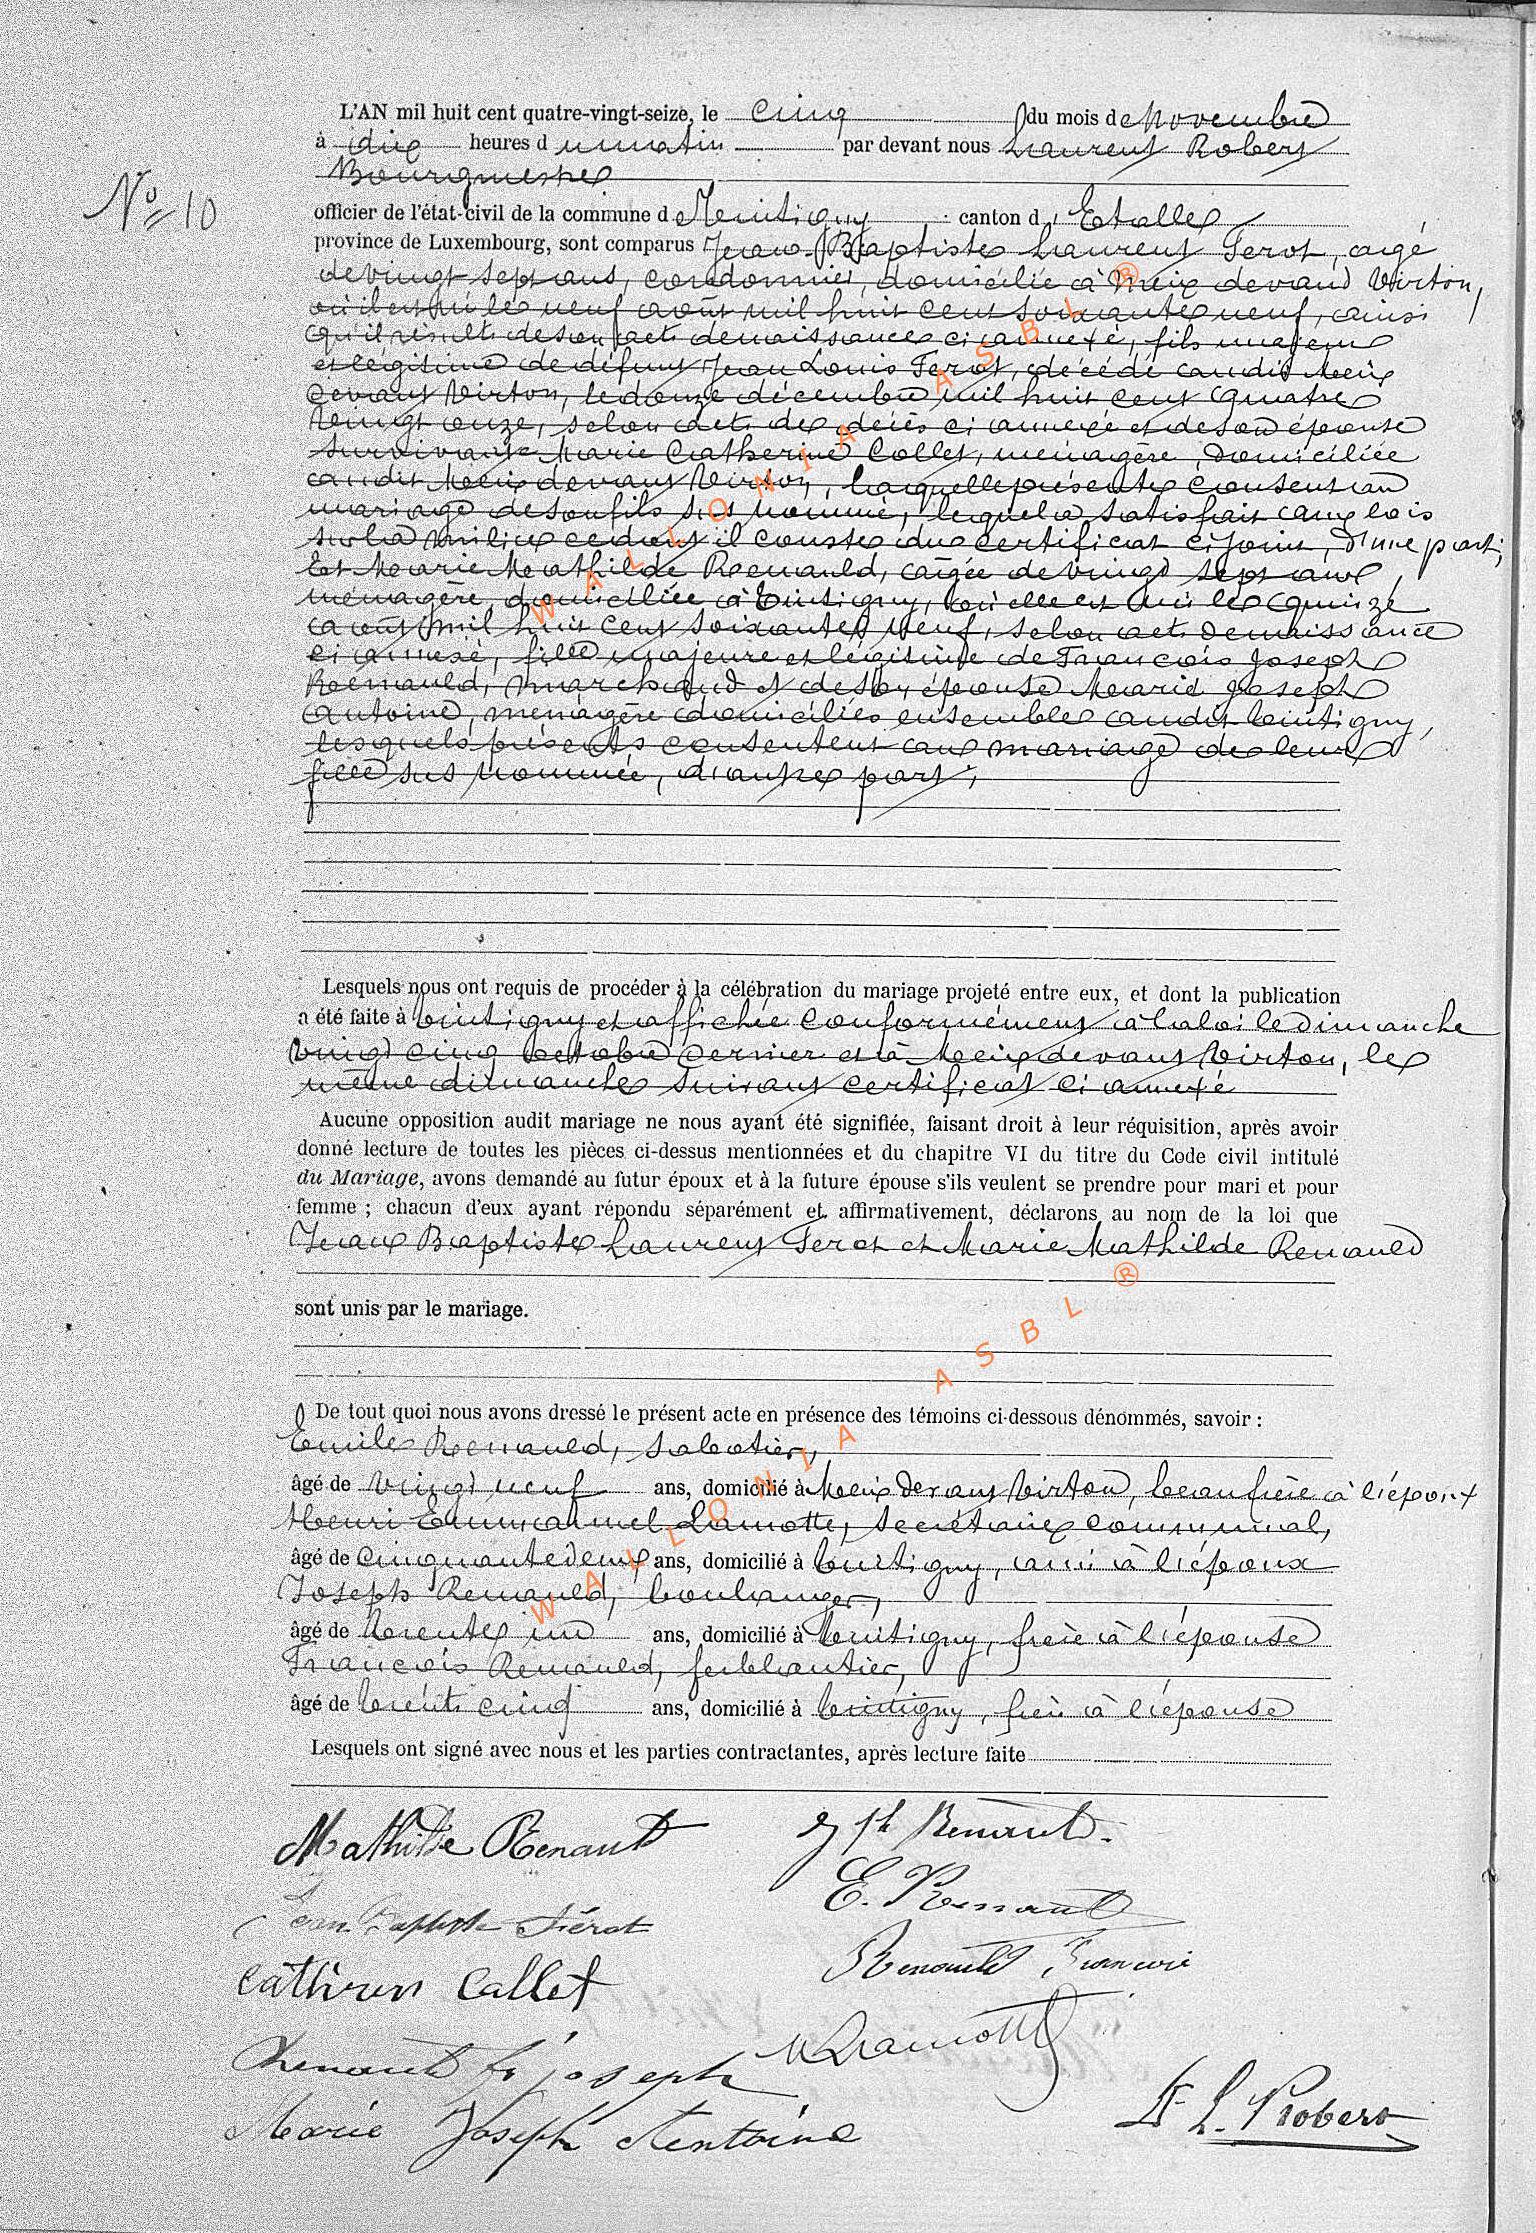 L'AN mil huit cent quatre-vingt-seize, le cinq du mois de Novembre
à dix heures du matin par devant nous Laurent Robert
Bourgmestre
No 10
officier de l'état-civil de la commune de Tintigny canton d'Etalle
province de Luxembourg, sont comparus Jean Baptiste Laurent Ferot, agé
de vingt sept ans, cordonnier, domicilié à Meix devant Virton,
où il est né le neuf août mil huit cent soixante neuf, ainsi
qu'il résulte de son acte de naissance ci annexé, fils majeur
et légitime de défunt Jean Louis Ferot, décédé audit Meix
devant Virton, le douze décembre mil huit cent quatre
vingt onze, selon acte de décès ci annexé et de son épouse
survivante Marie Catherine Collet, ménagère, domiciliée
audit Meix devant Virton, laquelle présente consent au
mariage de son fils sus nommé, lequel a satisfait aux lois
sur la milice ce dont il conste du certificat ci joint, d'une part;
Et Marie Mathilde Renauld, agée de vingt sept ans,
ménagère, domiciliée à Tintigny, où elle est née le quinze
août mil huit cent soixante neuf, selon acte de naissance
ci annexé, fille majeure et légitime de François Joseph
Renauld, marchand et de son épouse Marie Joseph
Antoine, ménagère domiciliés ensemble audit Tintigny,
lesquels présents consentent au mariage de leur
fille sus nommée, d'autre part;
Lesquels nous ont requis de procéder à la célébration du mariage projeté entre eux, et dont la publication
a été faite à Tintigny et affichée conformément à la loi le dimanche
vingt cinq octobre dernier et à Meix devant Virton, le
même dimanche suivant certificat ci annexé
Aucune opposition audit mariage ne nous ayant été signifiée, faisant droit à leur réquisition, après avoir
donné lecture de toutes les pièces ci-dessus mentionnées et du chapitre VI du titre du Code civil intitulé
du Mariage, avons demandé au futur époux et à la future épouse s'ils veulent se prendre pour mari et pour
femme ; chacun d'eux ayant répondu séparément et affirmativement, déclarons au nom de la loi que
Jean Baptiste Laurent Ferot et Marie Mathilde Renauld
sont unis par le mariage.
De tout quoi nous avons dressé le présent acte en présence des témoins ci-dessous dénommés, savoir :
Emile Renauld, sabotier,
âgé de vingt neuf ans, domicilié à Meix devant Virton, beau frère à l'époux
Henri Emmanuel Lamotte, secrétaire communal,
âgé de cinquante deux ans, domicilié à Tintigny, ami à l'époux
Joseph Renauld, boulanger,
âgé de trente un ans, domicilié à Tintigny, frère à l'épouse
François Renauld, ferblantier,
âgé de trente cinq ans, domicilié à Tintigny, frère à l'épouse
Lesquels ont signé avec nous et les parties contractantes, après lecture faite
Mathilde Renault Jph Renault.
E. Renault
Jean Baptiste Férot
Renault François
Cathirin Callet
Lamotte
Renault fs joseph
Marie Joseph Antoine
L. Robert
WALLONIA ASBL ®
WALLONIA ASBL ®